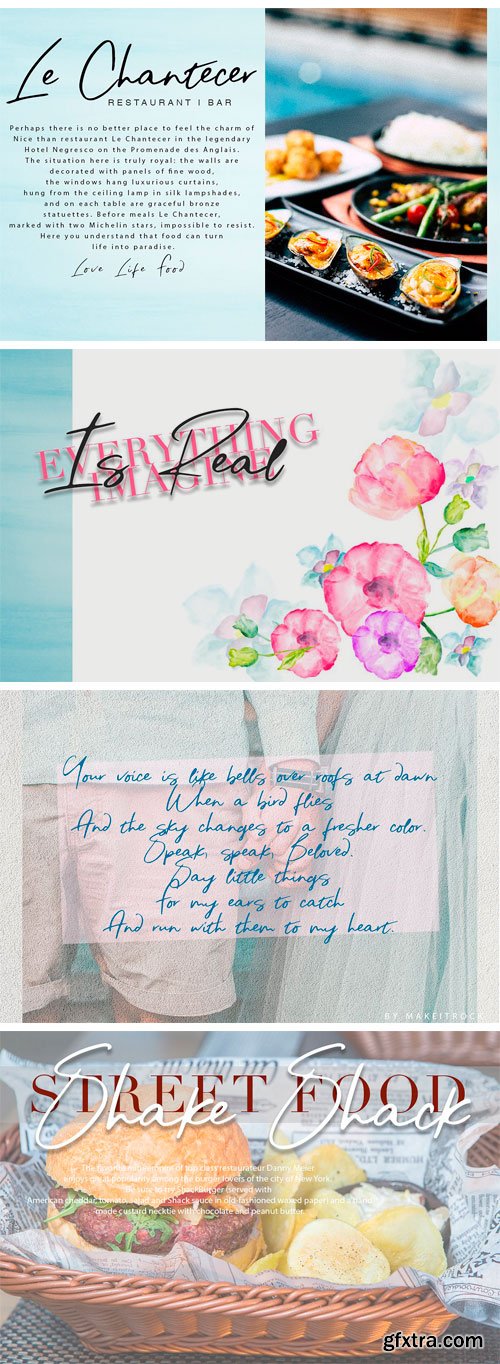 Le Chantecer
RESTAURANT I BAR
Perhaps there is no better place to feel the charm of
Nice than restaurant Le Chantecer in the legendary
Hotel Negresco on the Promenade des Anglais.
The situation here is truly royal: the walls are
decorated with panels of fine wood,
the windows hang luxurious curtains,
hung from the ceiling lamp in silk lampshades,
and on each table are graceful bronze
statuettes. Before meals Le Chantecer,
marked with two Michelin stars, impossible to resist.
Here you understand that food can turn
life into paradise.
Love Life Food
EVERYTHING
Is Real
IMAGINE
Your voice is like bells over roofs at dawn
When a bird flies
And the sky changes to a fresher color.
Speak, speak, Beloved.
Say little things
For my ears to catch
And run with them to my heart.
BY MAKEITROCK
STREET FOOD
Shake Shack
The favorite mini-empire of top-class restaurateur Danny Meier
enjoys great popularity among the burger lovers of the city of New York.
Be sure to try ShackBurger (served with
American cheddar, tomato, salad and Shack sauce in old-fashioned waxed paper) and a hand
made custard necktie with chocolate and peanut butter.
gfxtra.com